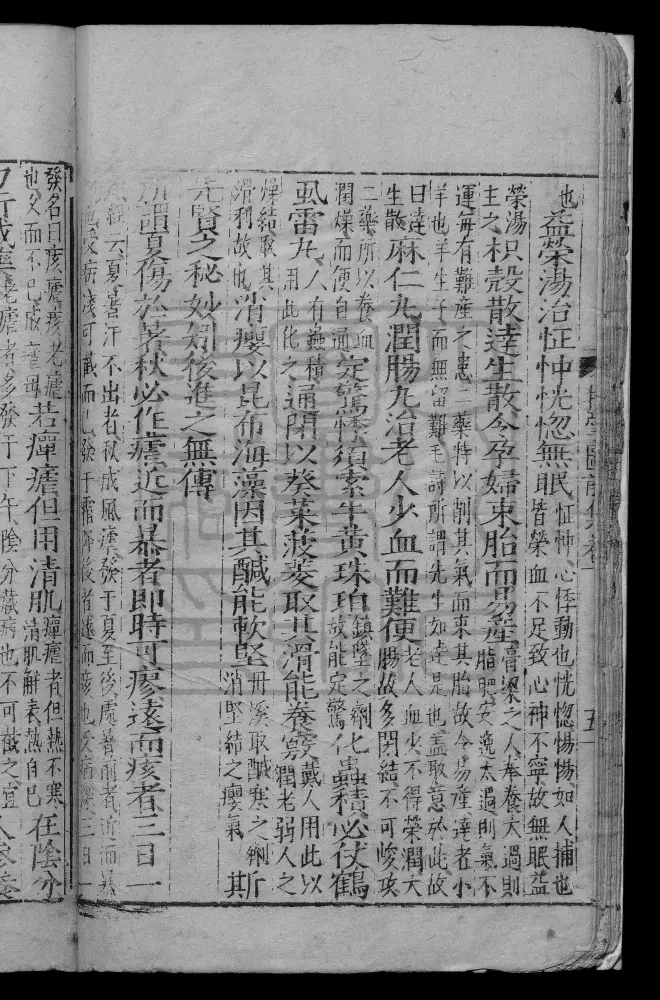 也益榮湯治怔忡恍惚無眠怔忡心悸動也恍惚惕惕如人捕也皆榮血不足致心神不寧故無眠益
榮湯主之枳殼散達生散令孕婦束胎而易產膏梁之人奉養太過則氣不脂肥安逸太過則氣不
運每有難產之患二藥特以削其氣而束其胎故令易產達者小
羊也羊生子而無留難毛詩所謂先生如達是也蓋取意於此故
曰達生散麻仁丸潤腸丸治老人少血而難便老人血少不得榮潤大腸故多閉結不可峻攻
二藥所以養血潤燥而便自通定驚悸須索牛黃珠珀鎮墜之劑故能定驚化蟲積必仗鶴
虱雷丸人有蟲積用此化之通閉以葵菜菠薐取其滑能養竅戴人用此以潤老弱人之
燥結取其滑利故也消癭以昆布海藻因其鹹能軟堅丹溪取鹹寒之劑消堅結之癭氣斯
先賢之秘妙矧後進之無傳
所謂夏傷於暑秋必作瘧近而暴者即時可瘳遠而痎者三日一
云夏暑汗不出者秋成風瘧發于夏至後處暑前者近而暴
也受病淺可截而已發于霜降後者遠而痎也受病深三日一
發名曰痎瘧痎老瘧也久而不已成瘧母若癉瘧但用清肌癉瘧者但熱不寒清肌解表熱自已在陰分
瘧者多發于下午陰分藏病也不可截之宜